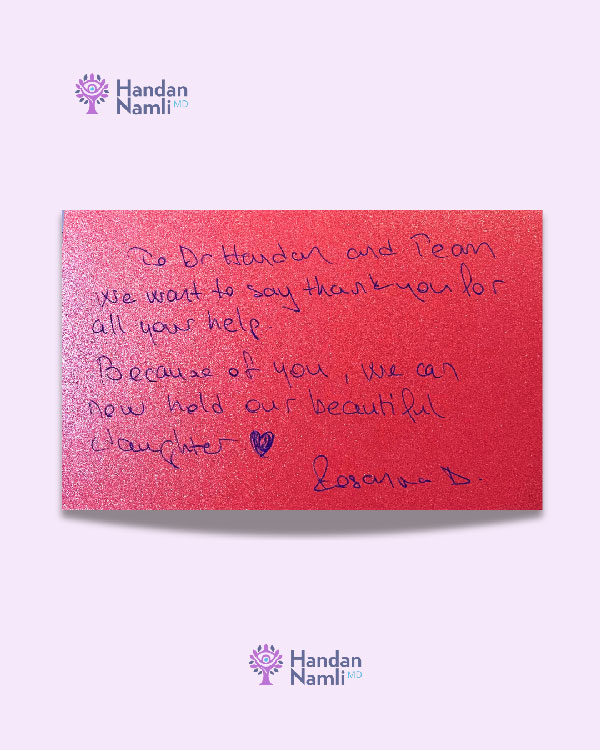 Handan
Namli MD
To Dr Handan and Team
we want to say thank you for
all your help.
Because of you, we can
now hold our beautiful
daughter
Rosanna D.
Handan
Namli MD